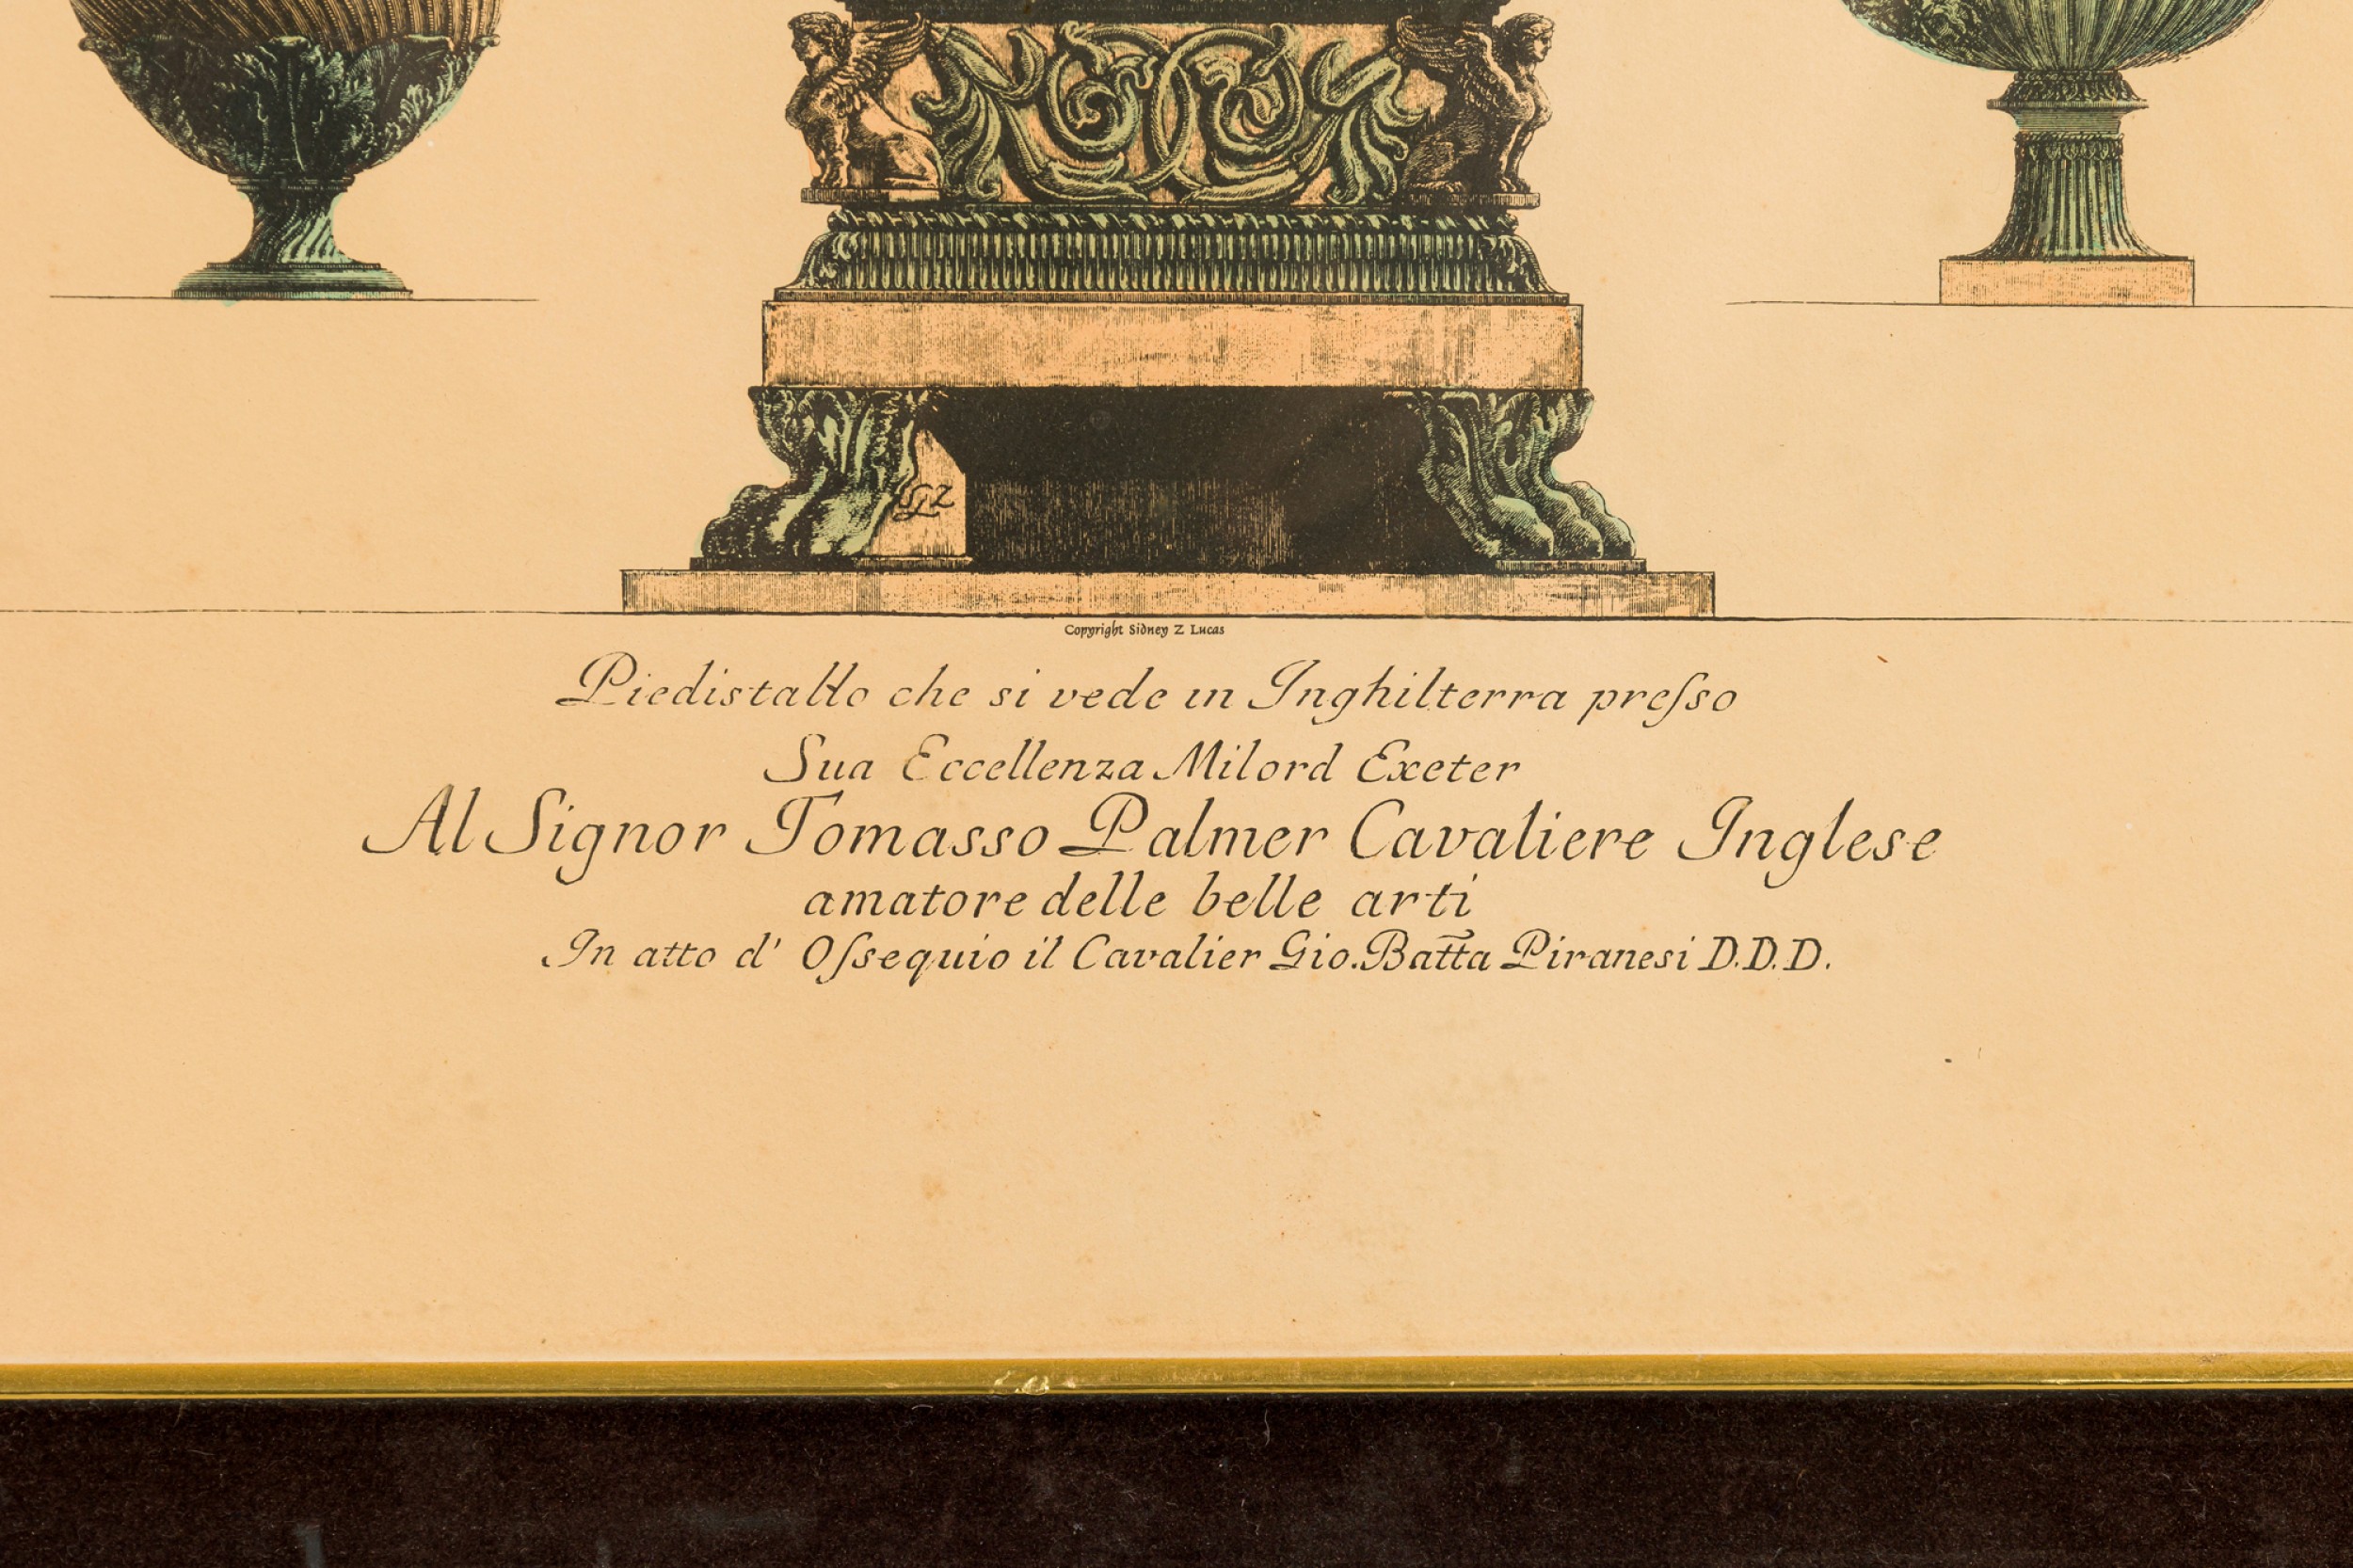 SLZ
Copyright Sidney Z Lucas
Piedistallo che si vede in Inghilterra preſso
Sua Eccellenza Milord Exeter
Al Signor Tomasso Palmer Cavaliere Inglese
amatore delle belle arti
In atto d' Oſsequio il Cavalier Gio. Batt̅a Piranesi D.D.D.